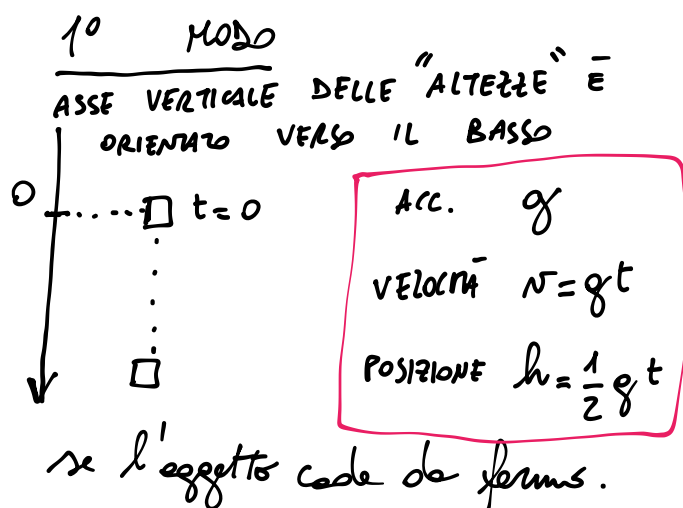 1º MODO
ASSE VERTICALE DELLE "ALTEZZE" È
ORIENTATO VERSO IL BASSO
0
t = 0
ACC. g
VELOCITÀ v = gt
POSIZIONE h = 1/2 g t
se l'oggetto cade da fermo.